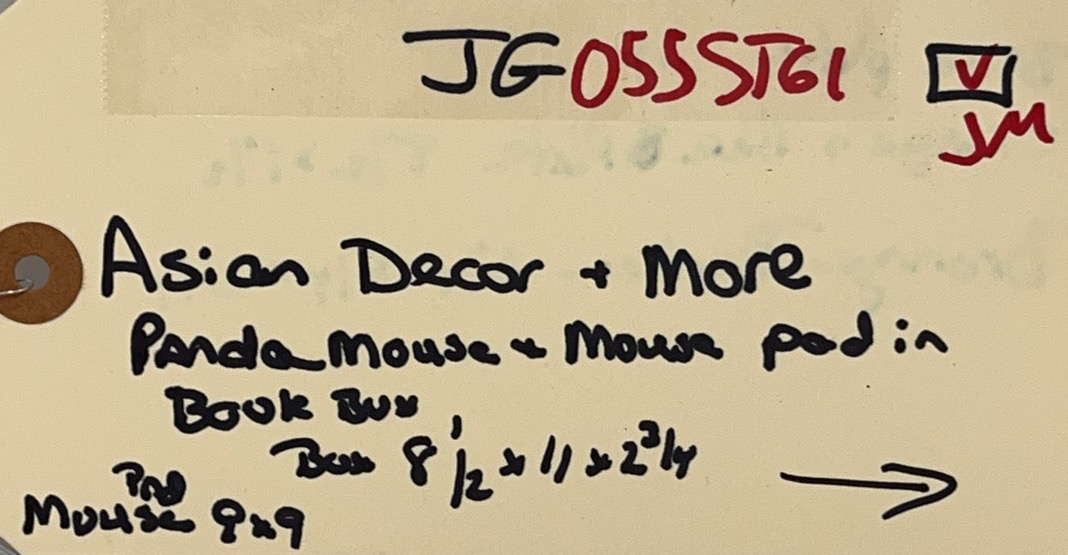 JG055ST61 ✓
JM
Asian Decor + More
Panda mouse + Mouse pad in
Book Box
Box 8 1/2 x 11 x 2 3/4
Pad
Mouse 9x9
→